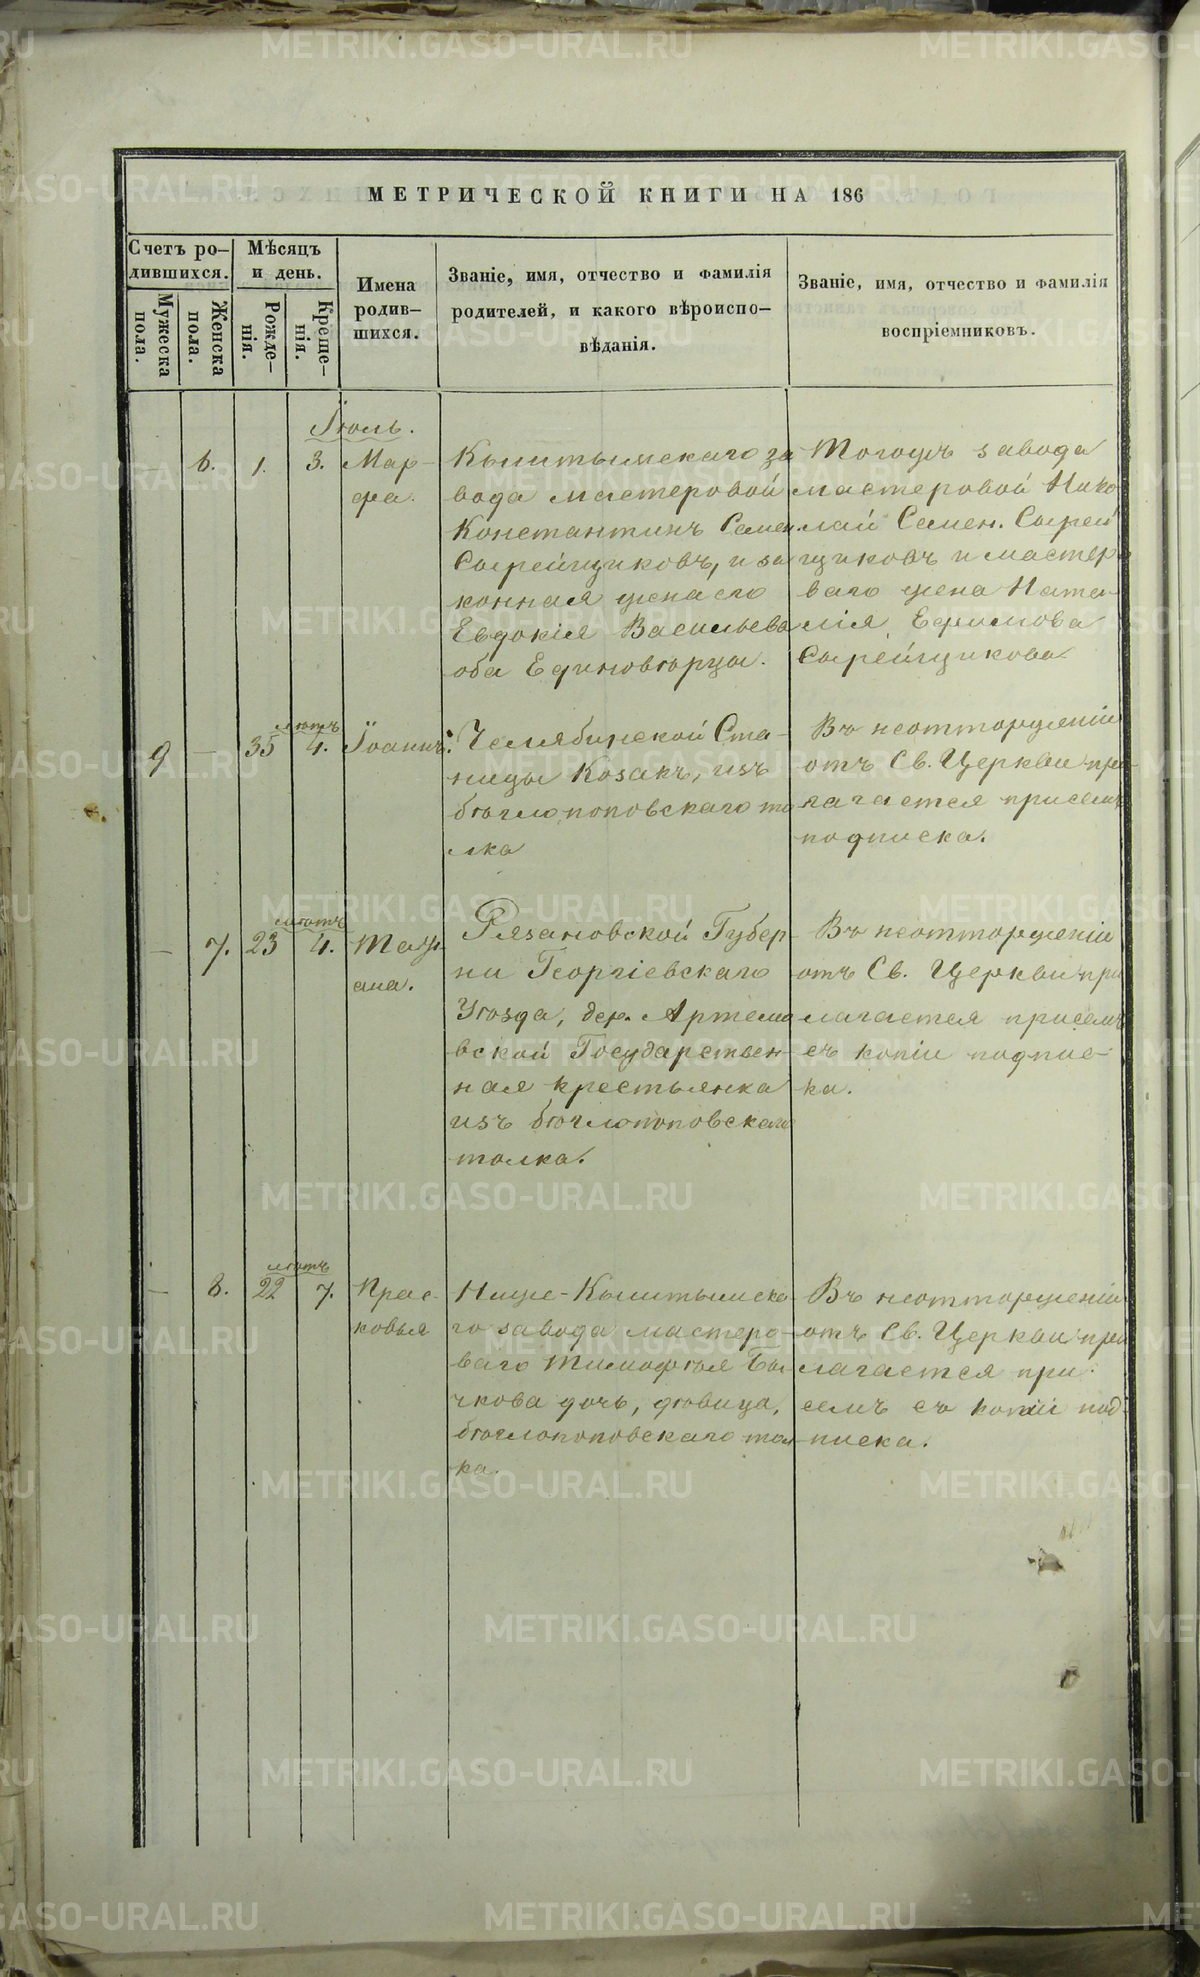 МЕТРИЧЕСКОЙ КНИГИ НА 186
Счетъ ро-
дившихся.
Мѣсяцъ
и день.
Мужеска
пола.
Женска
пола.
Рожде-
нія.
Креще-
нія.
Имена
родив-
шихся.
Званіе, имя, отчество и фамилія
родителей, и какого вѣроиспо-
вѣданія.
Званіе, имя, отчество и фамилія
воспріемниковъ.
Іюль.
— 6. 1. 3. Мар-
фа.
Кыштымскаго за
вода мастеровой
Константинъ Семен.
Сырейщиковъ, и за
конная жена его
Евдокія Васильева
оба Единовѣрцы.
Тогожъ завода
мастеровой Нико
лай Семен. Сырей
щиковъ и мастеро
ваго жена Ната-
лія Ефимова
Сырейщикова.
лѣтъ
9 — 35 4. Іоаннъ.
Челябинской Ста-
ницы Козакъ, изъ
бѣглопоповскаго то
лка
Въ неотторженіи
отъ Св. Церкви при-
лагается присемъ
подписка.
лѣтъ
— 7. 23 4. Тать-
яна.
Рязановской Губер-
ни Георгіевскаго
Уѣзда, дер. Артемо
вской Государствен-
ная крестьянка
изъ бѣглопоповскаго
толка.
Въ неотторженіи
отъ Св. Церкви при
лагается присемъ
съ копіи подпис-
ка.
лѣтъ
— 8. 22 7. Прас-
ковья
Нижне-Кыштымска
го завода мастеро-
ваго Тимофѣя Бы
чкова дочь, дѣвица,
бѣглопоповскаго тол
ка.
Въ неотторженіи
отъ Св. Церкви при
лагается при
семъ съ копіи под-
писка.
METRIKI.GASO-URAL.RU